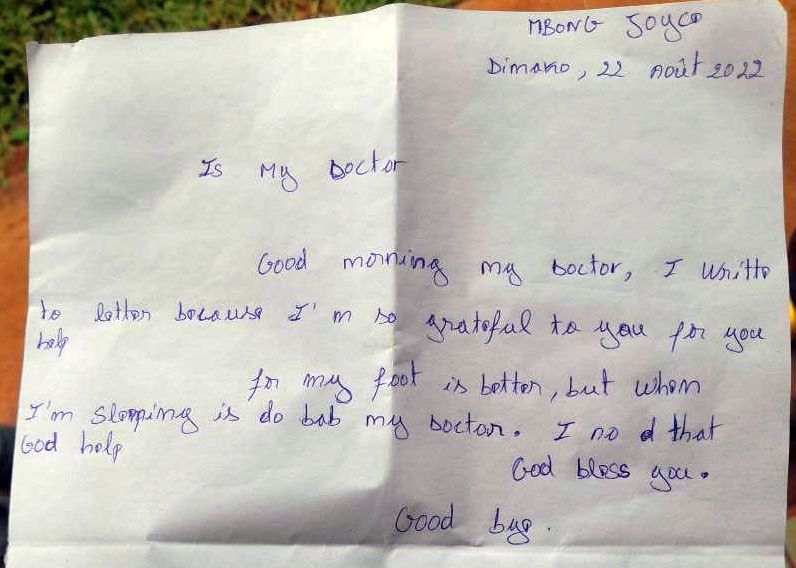 MBONG Joyce
Dimako, 22 Août 2022
Is My Doctor
Good morning my Doctor, I writte
to letter because I'm so grateful to you for you
help
for my foot is better, but when
I'm sleeping is do bab my Doctor. I no d that
God help
God bless you.
Good bye.